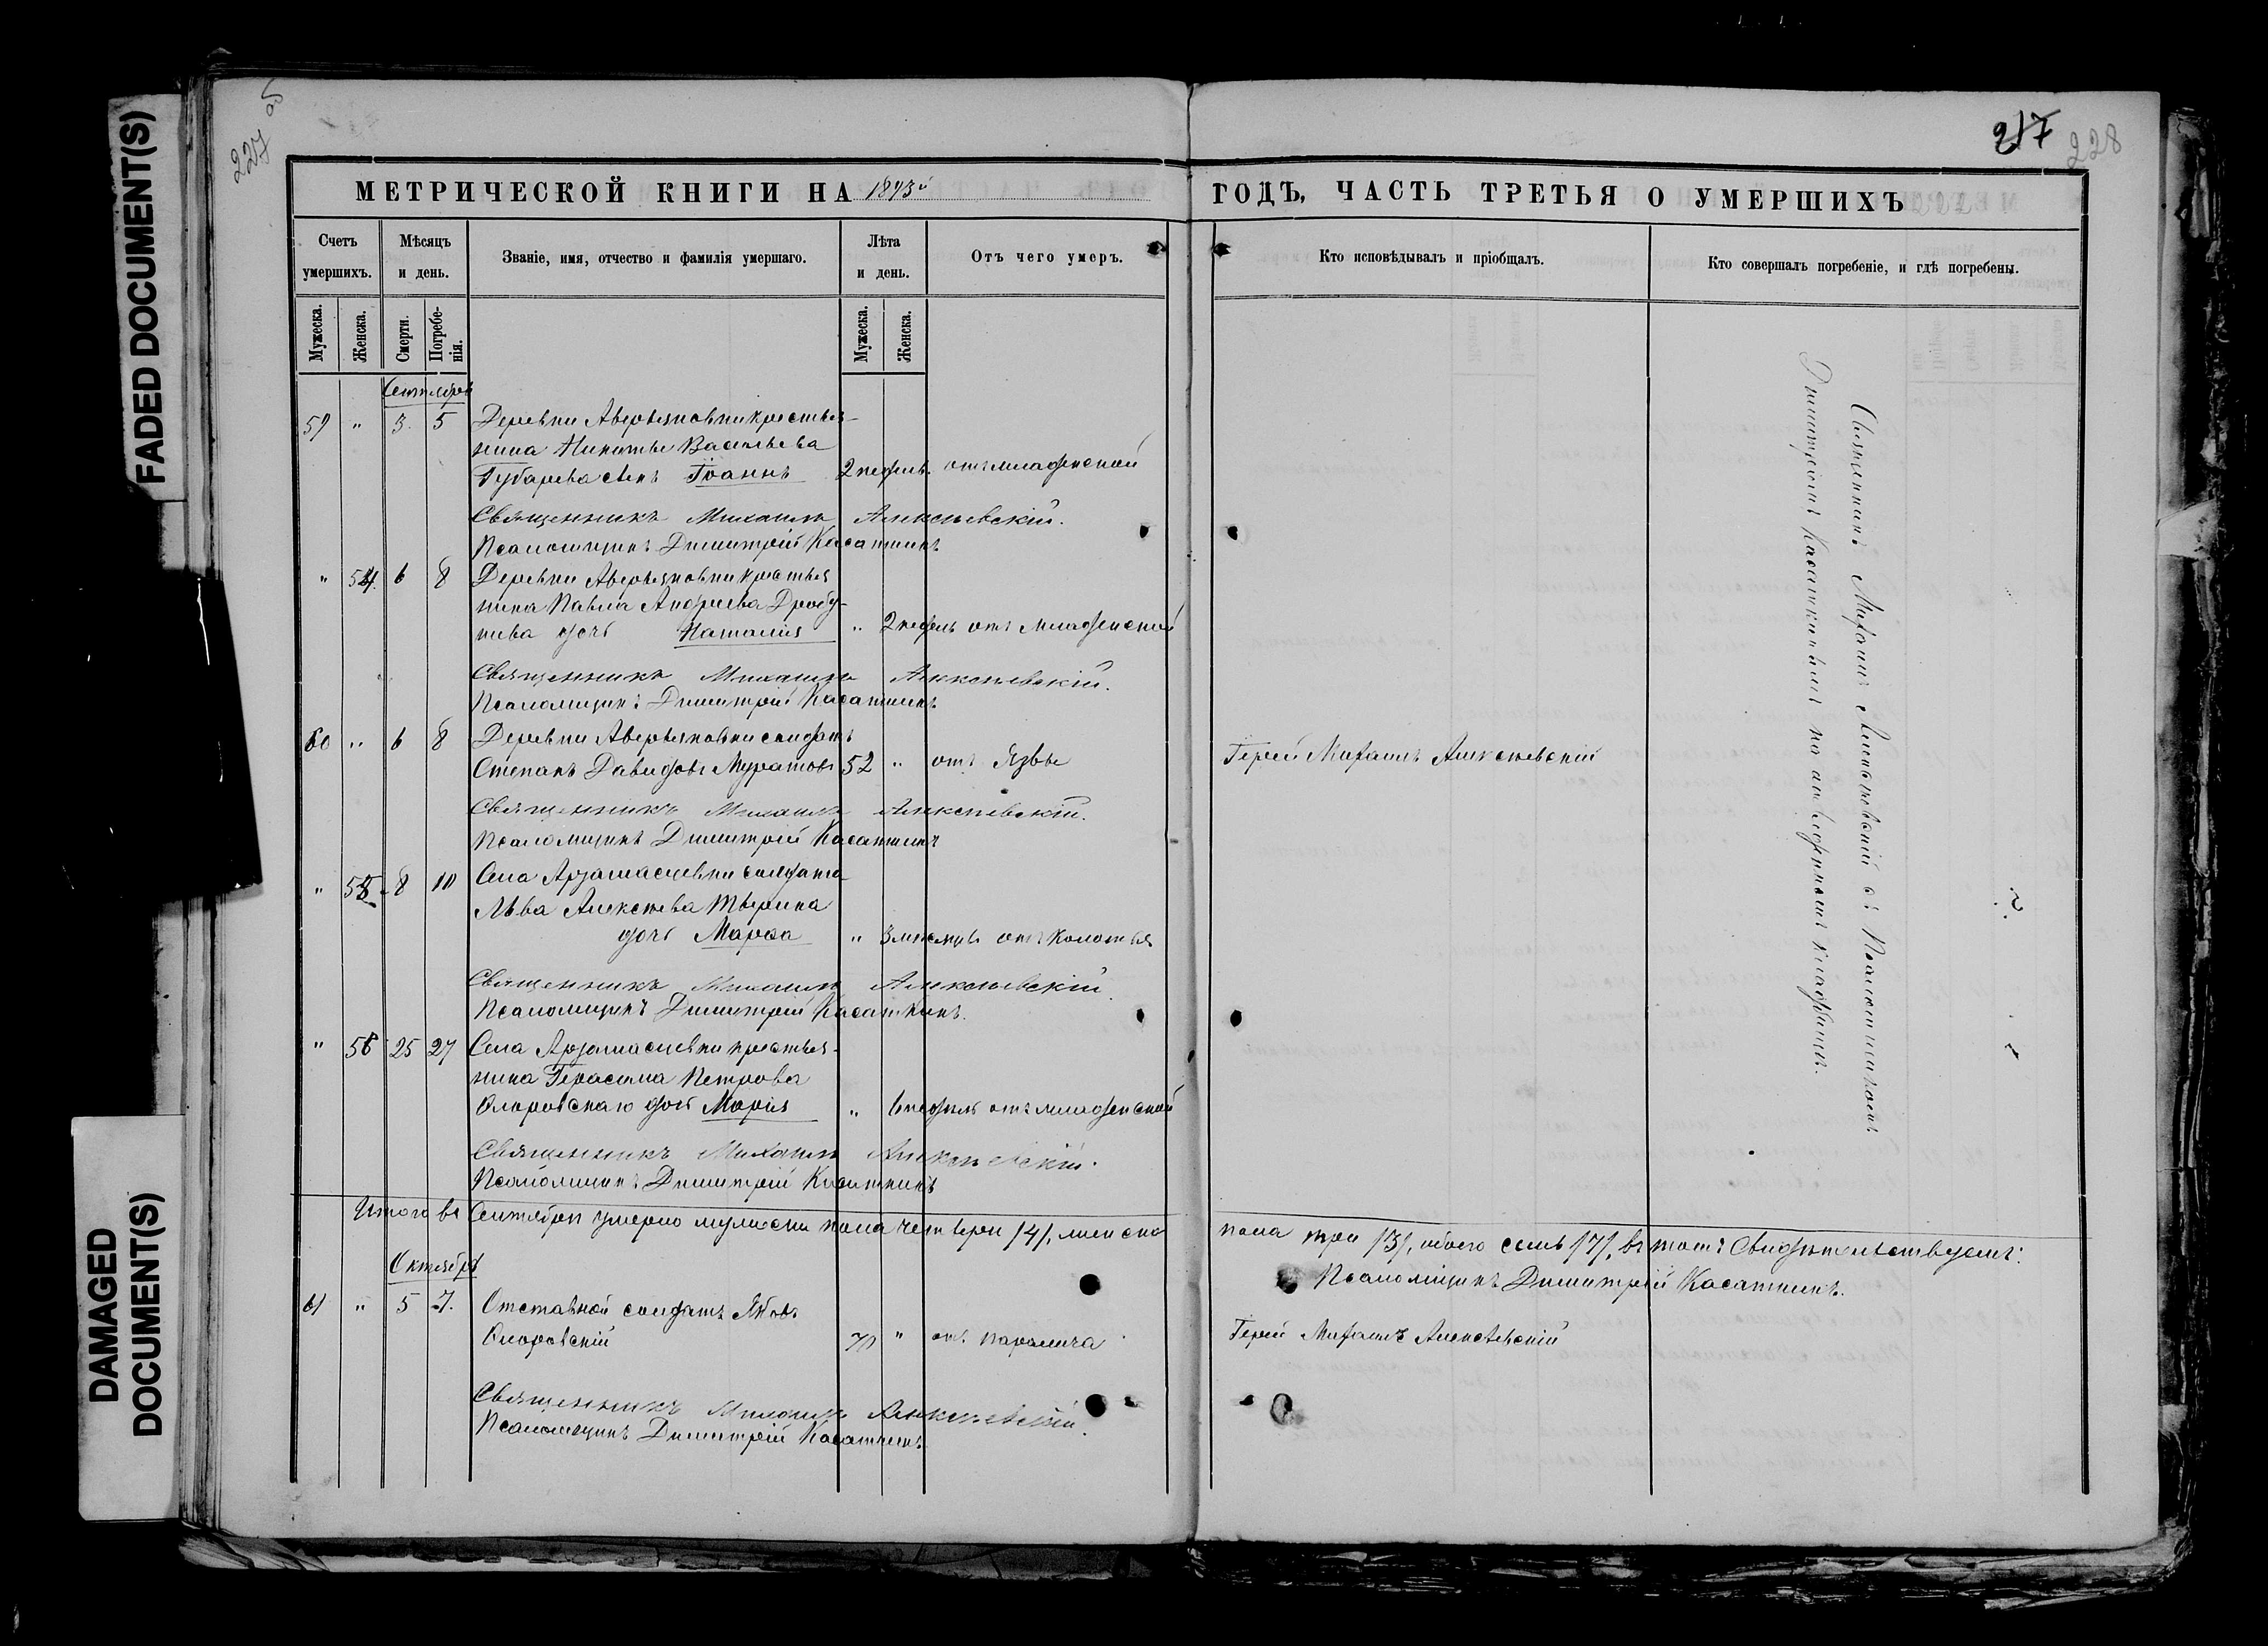 FADED DOCUMENT(S)
DAMAGED
DOCUMENT(S)
227 об
217 228
МЕТРИЧЕСКОЙ КНИГИ НА 1873й ГОДЪ, ЧАСТЬ ТРЕТЬЯ О УМЕРШИХЪ
Счетъ умершихъ.
Мѣсяцъ и день.
Званіе, имя, отчество и фамилія умершаго.
Лѣта и день.
Отъ чего умеръ.
Кто исповѣдывалъ и пріобщалъ.
Кто совершалъ погребеніе, и гдѣ погребены.
Мужеска.
Женска.
Смерти.
Погребе-
нія.
Мужеска.
Женска.
Сентябрь
59 " 3 5 Деревни Аверьяновки крестья-
нина Никиты Васильева
Губарева сынъ Іоаннъ 2 недѣль отъ младенской
Священникъ Михаилъ Алексѣевскій.
Псаломщикъ Димитрій Касаткинъ
" 54 6 8 Деревни Аверьяновки крестья
нина Павла Андреева
дочь Наталія " 2 недѣль отъ младенской
Священникъ Михаилъ Алексѣевскій.
Псаломщикъ Димитрій Касаткинъ
60 " 6 8 Деревни Аверьяновки солдатъ
Степанъ Давидовъ Муратовъ 52 " отъ Язвы Іерей Михаилъ Алексѣевскій
Священникъ Михаилъ Алексѣевскій.
Псаломщикъ Димитрій Касаткинъ
" 55 8 10 Села Арзамасцевки солдата
Льва Алексѣева Тверина
дочь Марѳа " 3 мѣсяцы отъ Колотья
Священникъ Михаилъ Алексѣевскій
Псаломщикъ Димитрій Касаткинъ.
" 56 25 27 Села Арзамасцевки крестья-
нина Герасима Петрова
дочь Марія " 6 недѣль отъ младенской
Священникъ Михаилъ Алексѣевскій.
Псаломщикъ Димитрій Касаткинъ
Итого въ Сентябрѣ умерло мужеска пола четверо /4/, женска пола три /3/, обоего семь /7/, въ томъ Свидѣтельствуемъ:
Псаломщикъ Димитрій Касаткинъ.
Октябрь
61 " 5 7. Отставной солдатъ Яковъ
70 " отъ паралича Іерей Михаилъ Алексѣевскій
Священникъ Михаилъ Алексѣевскій.
Псаломщикъ Димитрій Касаткинъ.
Священникъ Михаилъ Алексѣевскій съ Псаломщикомъ
Димитріемъ Касаткинымъ на кладбищѣ.